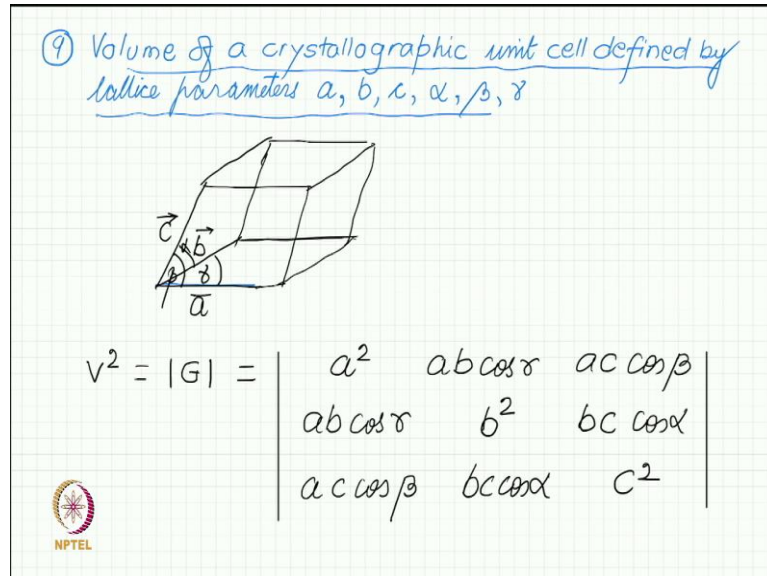 ⑨ Volume of a crystallographic unit cell defined by
lattice parameters a, b, c, α, β, γ
c⃗ α b⃗
β γ
a̅
V² = |G| = | a² ab cos γ ac cos β |
| ab cos γ b² bc cos α |
| ac cos β bc cos α c² |
NPTEL